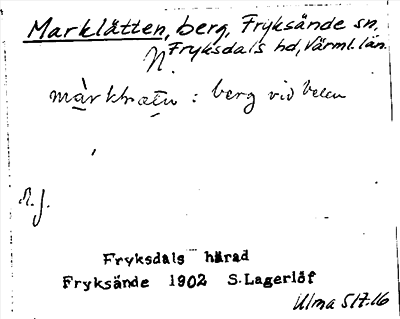 Marklätten, berg, Fryksände sn,
N. Fryksdals hd, Värml. län.
: berg vid
n. j.
Fryksdals härad
Fryksände 1902 S.Lagerlöf
Ulma 517:16